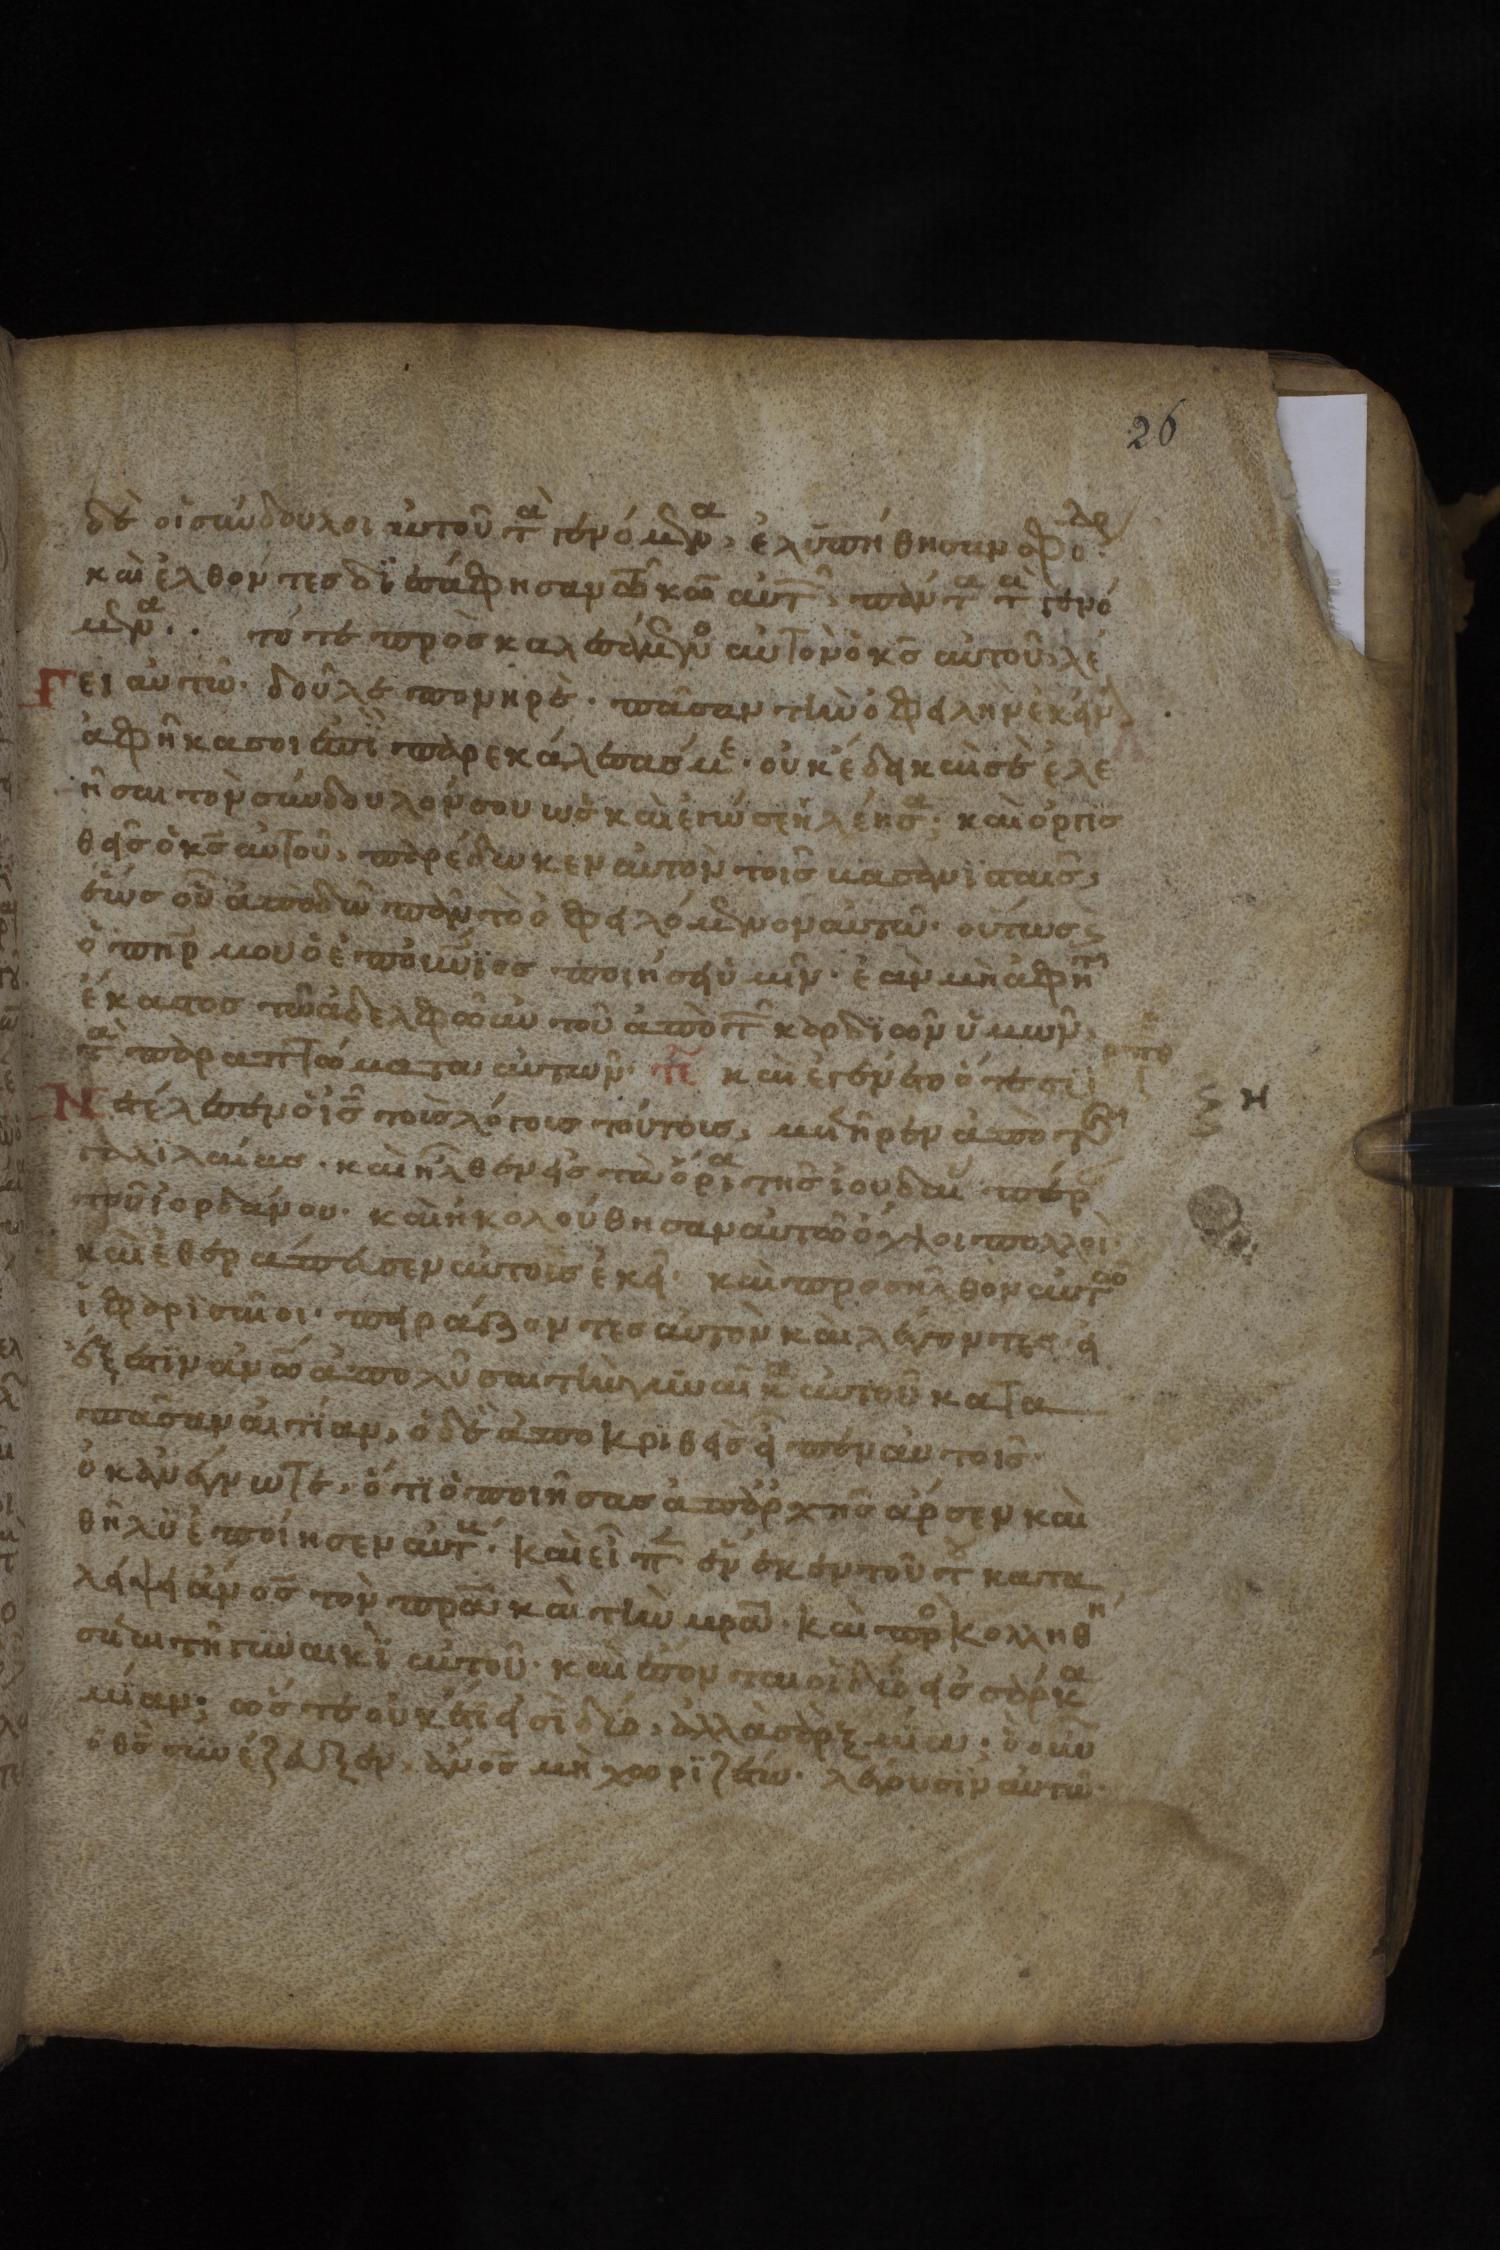 26
δὲ οἱ σύνδουλοι αὐτοῦ τὰ γενόμενα, ἐλυπήθησαν σφόδρα·
καὶ ἐλθόντες διεσάφησαν τῶ κω αὐτῶν, πάντα τὰ γενό
μενα. τότε προσκαλεσάμενος αὐτὸν ὁ κς αὐτοῦ, λέ
γει αὐτῶ· δοῦλε πονηρὲ· πᾶσαν τὴν ὀφειλὴν ἐκείνην
ἀφῆκα σοι ἐπεὶ παρεκάλεσάς με· οὐκ ἔδει καὶ σὲ ἐλε
ῆσαι τὸν σύνδουλόν σου ὡς καὶ ἐγώ σε ἠλέησα; καὶ ὀργισ
θεὶς ὁ κς αὐτοῦ, παρέδωκεν αὐτὸν τοῖς βασανισταῖς,
ἕως οὗ ἀποδῶ πᾶν τὸ ὀφειλόμενον αὐτῶ· οὕτως καὶ
ὁ πηρ μου ὁ ἐπουνιος ποιήσει ὑμῖν· ἐὰν μὴ ἀφῆτε
ἕκαστος τῶ ἀδελφῶ αὐτοῦ ἀπὸ τῶν καρδιῶν ὑμῶν,
τὰ παραπτώματα αὐτῶν· τε καὶ ἐγένετο ὅτε
ετέλεσεν ὁ ις τοὺς λόγους τούτους, μετῆρεν ἀπὸ τῆς
γαλιλαίας· καὶ ἦλθεν εἰς τὰ ὅρια τῆς ἰουδαίας πέραν
τοῦ ἰορδάνου· καὶ ἠκολούθησαν αὐτῶ ὄχλοι πολλοί·
καὶ ἐθεράπευσεν αὐτοὺς ἐκεῖ· καὶ προσῆλθον αὐτῶ
οἱ φαρισαῖοι· πειράζοντες αὐτὸν καὶ λέγοντες· εἰ
ἔξεστιν ανω ἀπολῦσαι τὴν γυναῖκα αὐτοῦ κατα
πᾶσαν αἰτίαν, ὁ δὲ ἀποκριθεὶς εἶπεν αὐτοῖς·
οὐκ ἀνέγνωτε, ὅτι ὁ ποιήσας ἀπαρχῆς ἄρσεν καὶ
θῆλυ ἐποίησεν αὐτούς· καὶ εἶπεν ἕνεκεν τούτου κατα
λείψει ανος τὸν πρα καὶ τὴν μρα· καὶ προσκολληθή
σεται τῆ γυναικὶ αὐτοῦ· καὶ ἔσονται οἱ δύο εἰς σάρκα
μίαν; ὥστε οὐκέτι εἰσὶ δύο, ἀλλὰ σὰρξ μία· ὃ οὖν
ὁ θς συνέζευξεν, ανος μὴ χωριζέτω· λέγουσιν αὐτῶ·